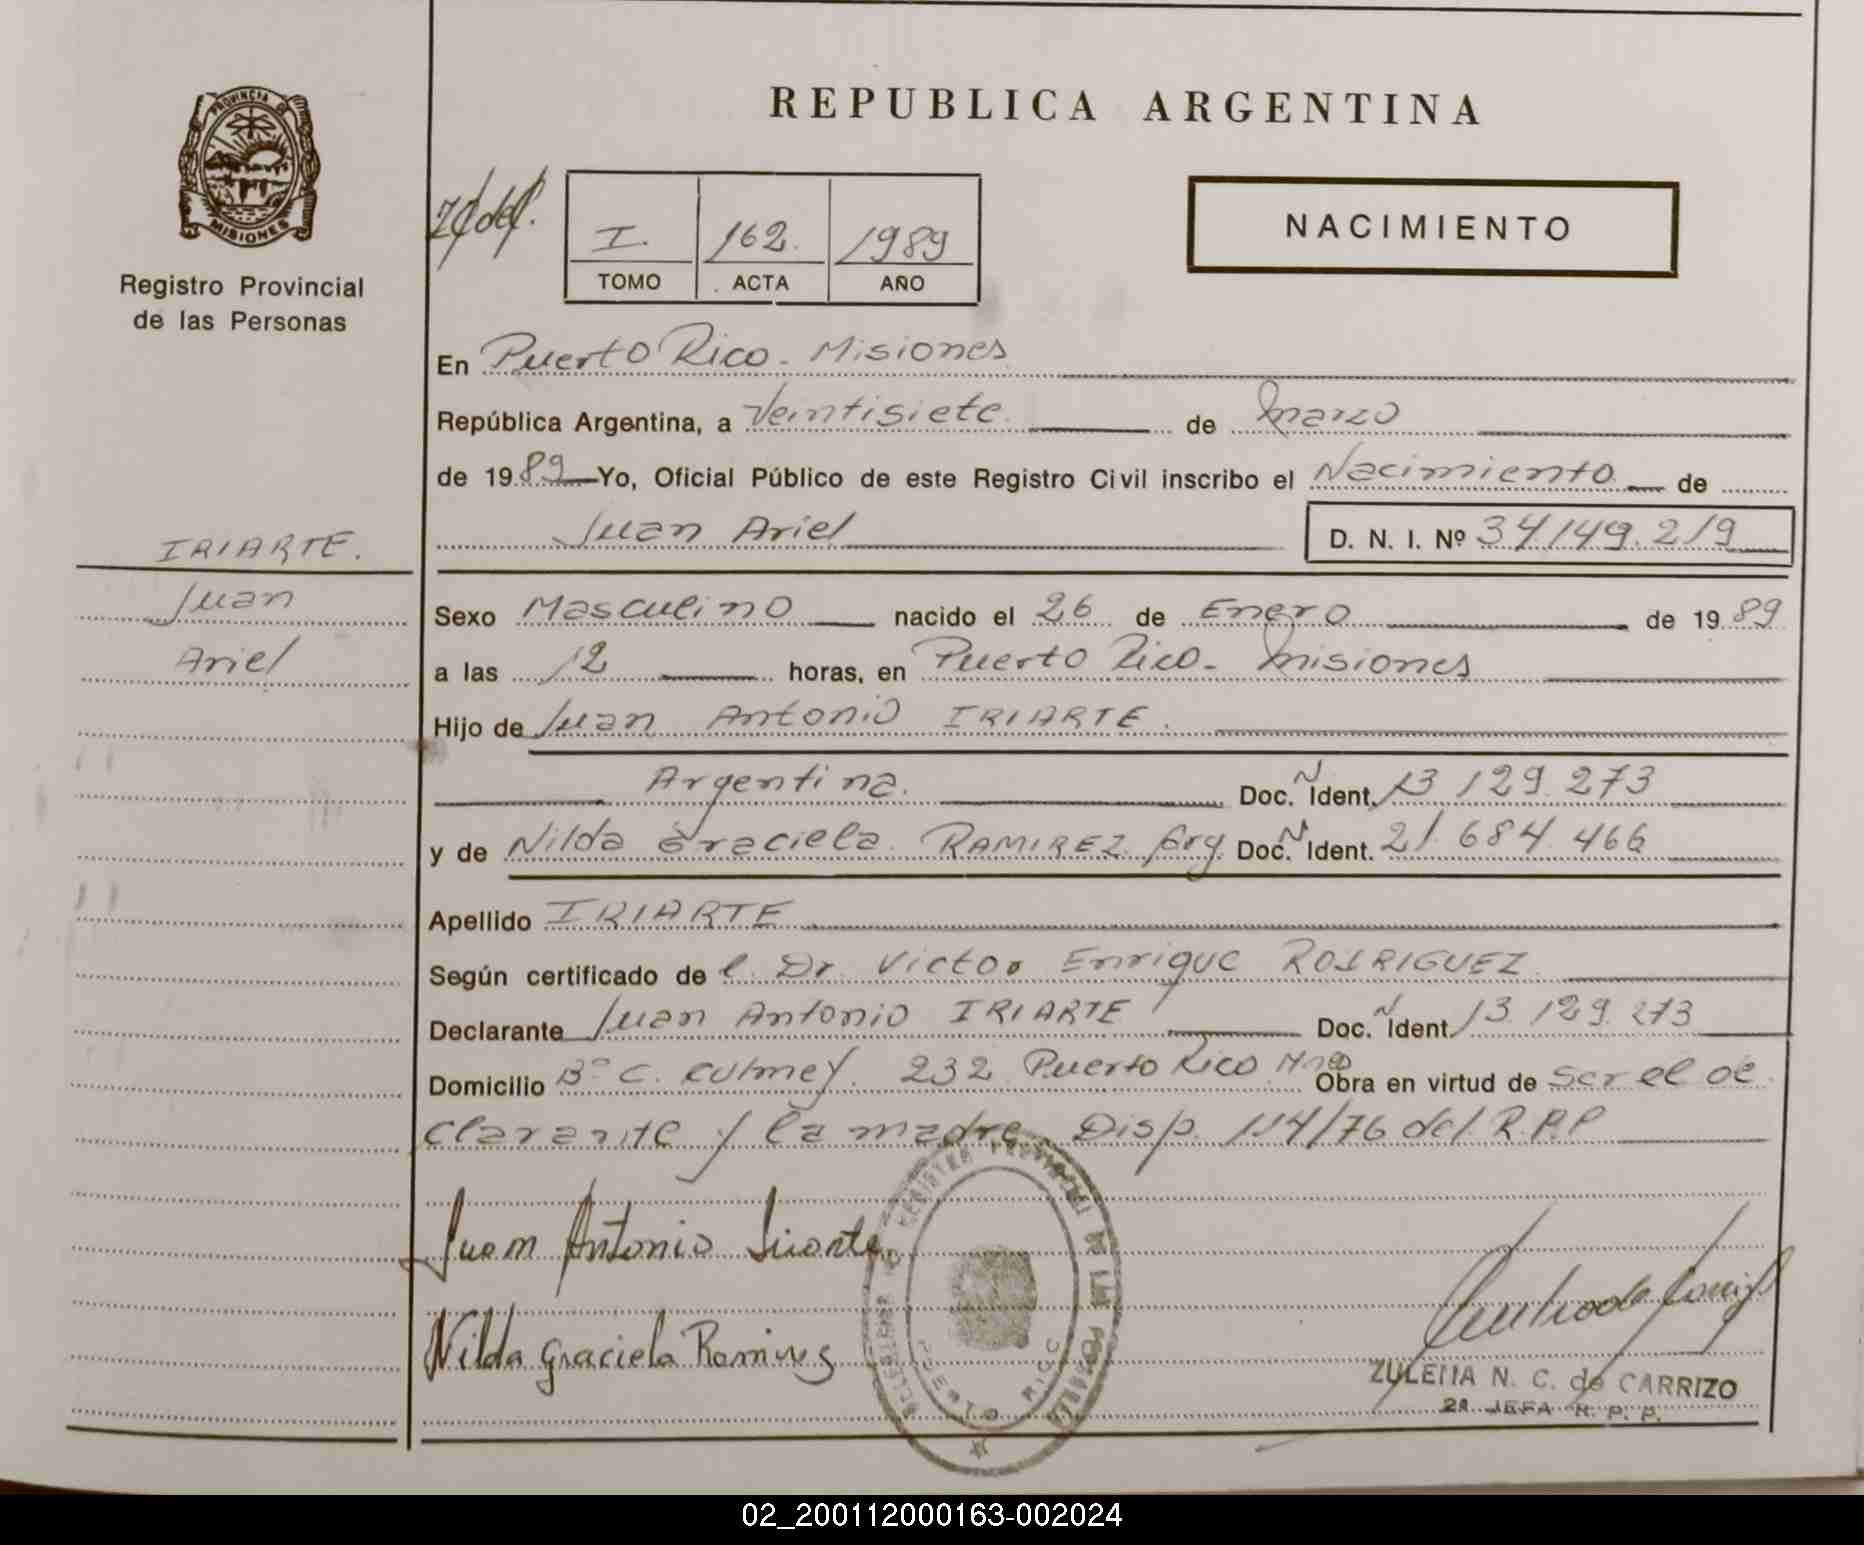 REPUBLICA ARGENTINA
PROVINCIA DE
MISIONES
Registro Provincial
de las Personas
I. 162. 1989
TOMO ACTA AÑO
NACIMIENTO
En Puerto Rico - Misiones
República Argentina, a Veintisiete de Marzo
de 1989 Yo, Oficial Público de este Registro Civil inscribo el Nacimiento de
Juan Ariel D. N. I. Nº 34149.219
IRIARTE.
Juan
Ariel
Sexo Masculino nacido el 26 de Enero de 1989
a las 12 horas, en Puerto Rico - Misiones
Hijo de Juan Antonio IRIARTE.
Argentina. Doc. Ident. 13 129 273
y de Nilda Graciela RAMIREZ Arg Doc. Ident. 21.684.466
Apellido IRIARTE
Según certificado de l. Dr. Victor Enrique RODRIGUEZ
Declarante Juan Antonio IRIARTE Doc. Ident. 13.129.273
Domicilio Bº C. Culmey. 232 Puerto Rico Mnes Obra en virtud de ser el de
clarante y la madre Disp. 114/76 del R.P.P
Juan Antonio Iriarte
Nilda Graciela Ramires
REGISTRO PROVINCIAL DE LAS PERSONAS
PUERTO RICO
ZULEMA N. C. de CARRIZO
2a JEFA R. P. P.
02_200112000163-002024